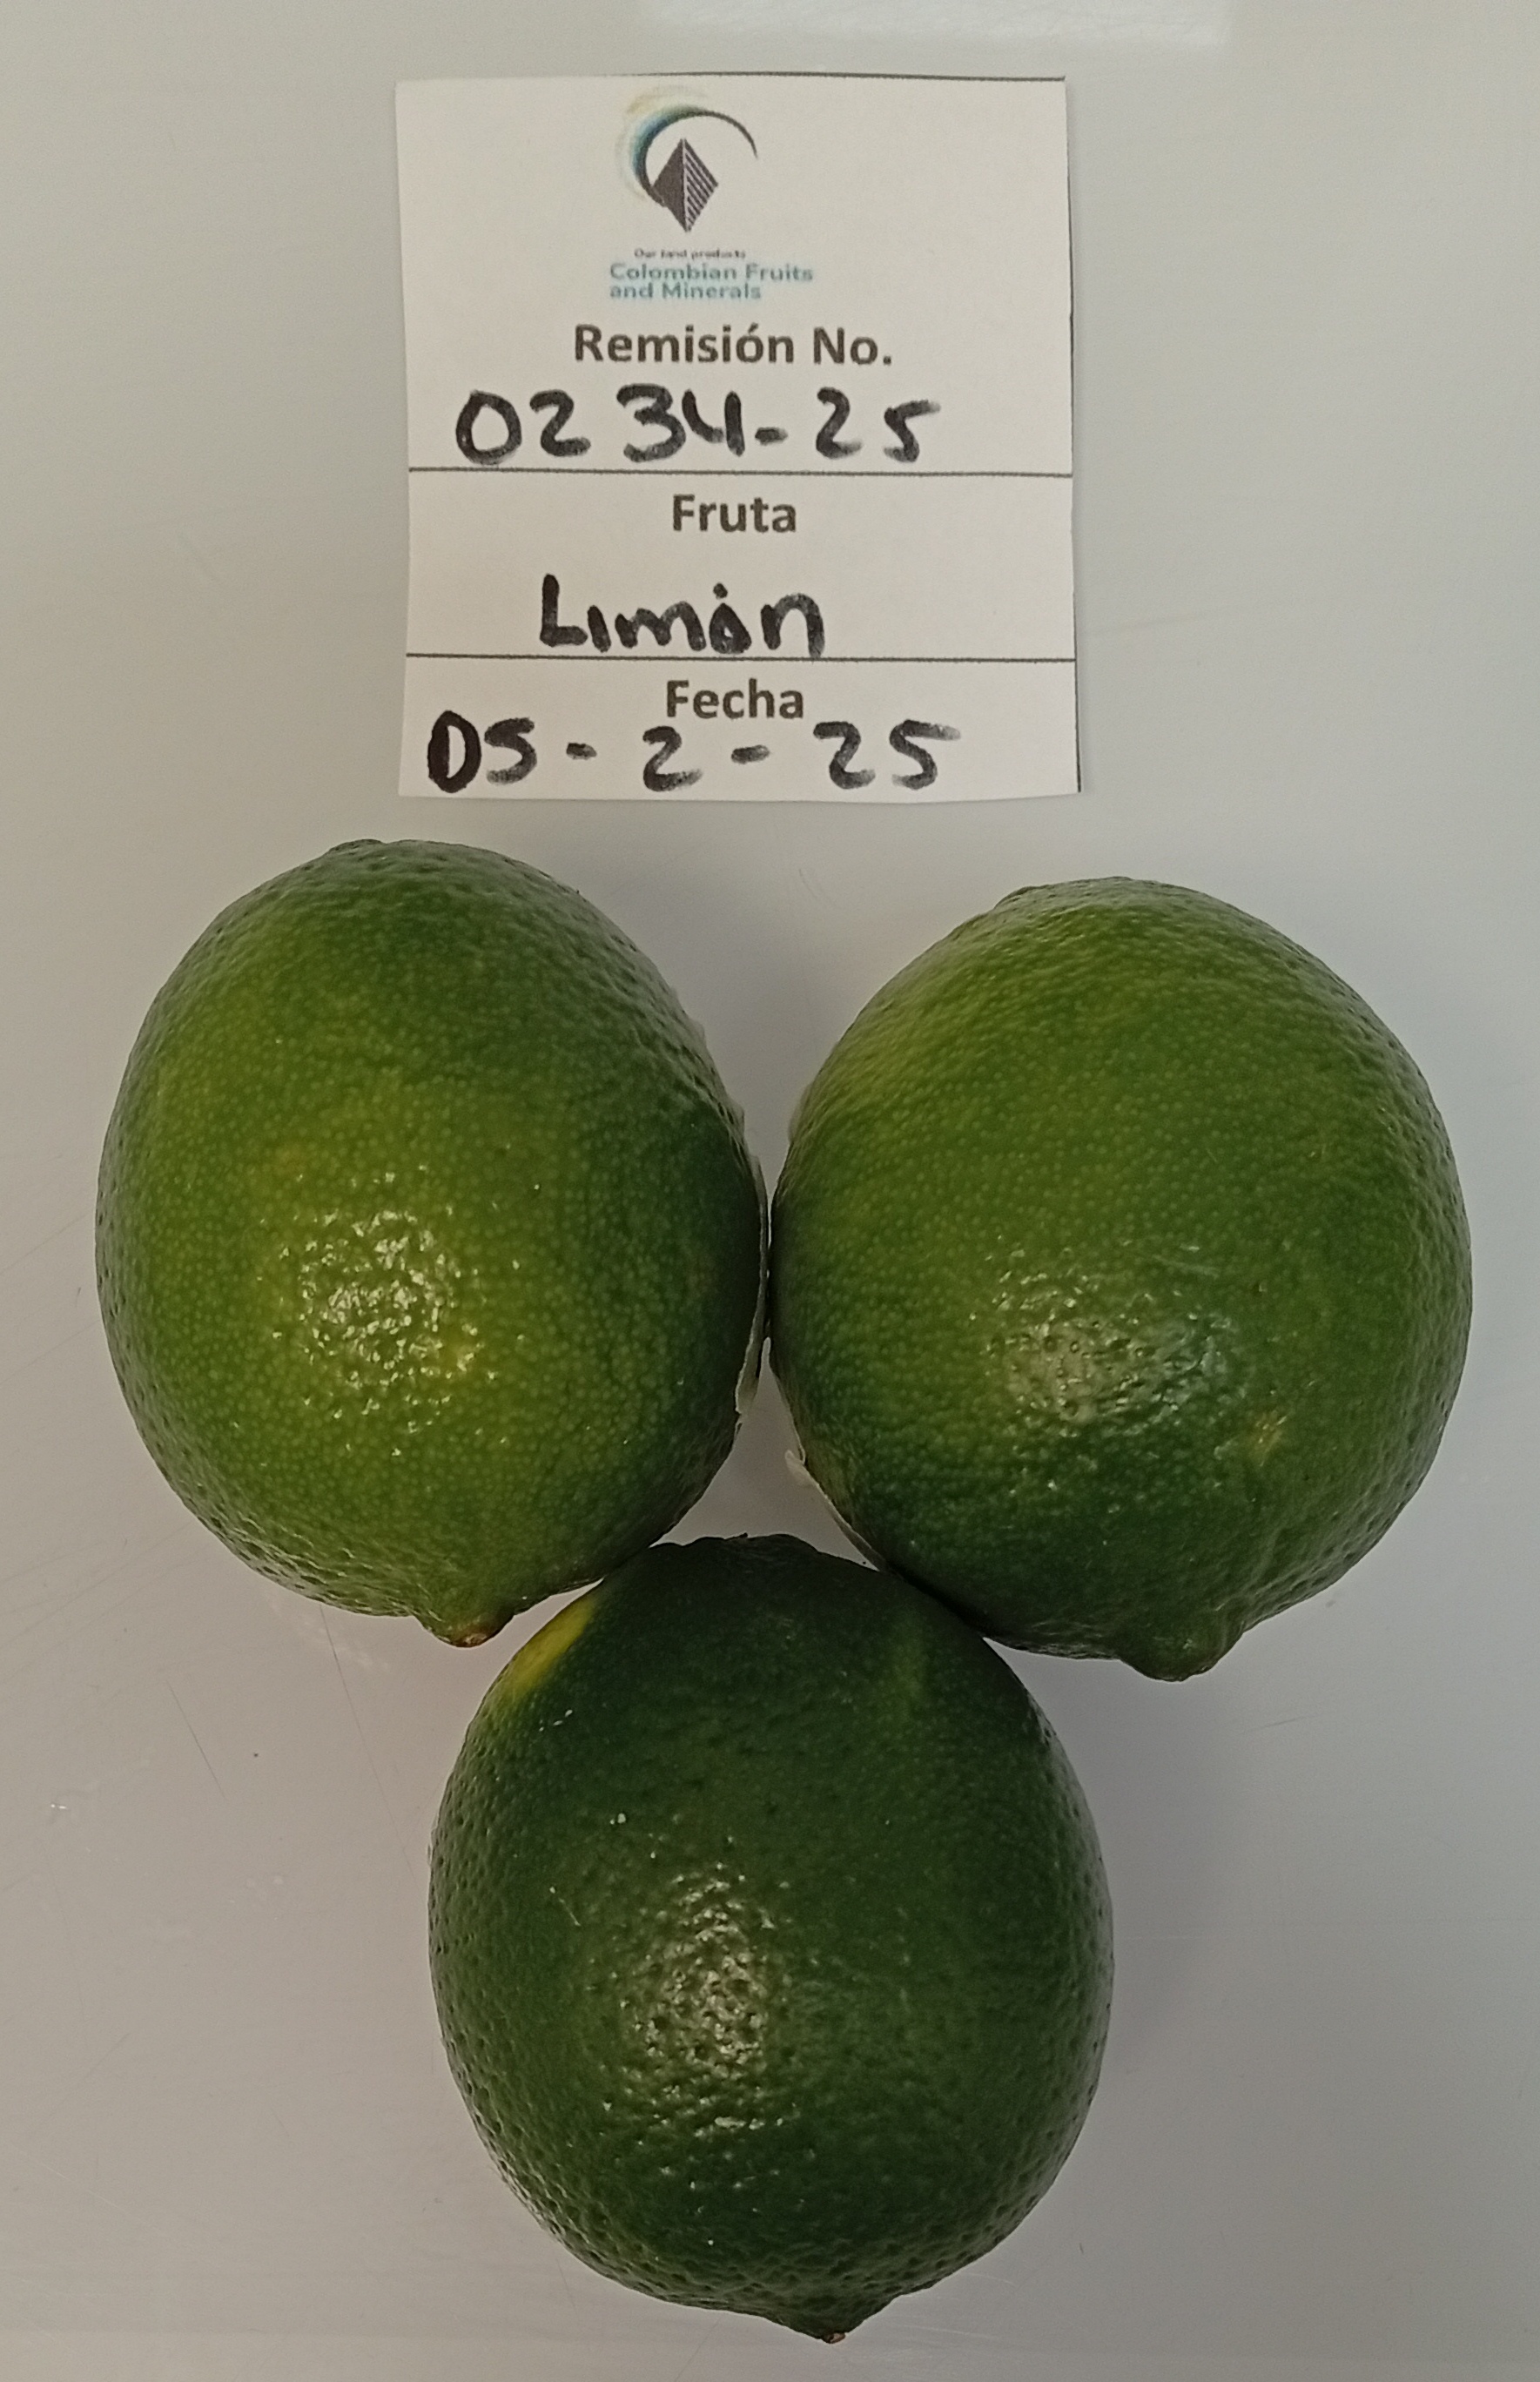 Our land products
Colombian Fruits
and Minerals
Remisión No.
0234-25
Fruta
Limón
Fecha
05-2-25